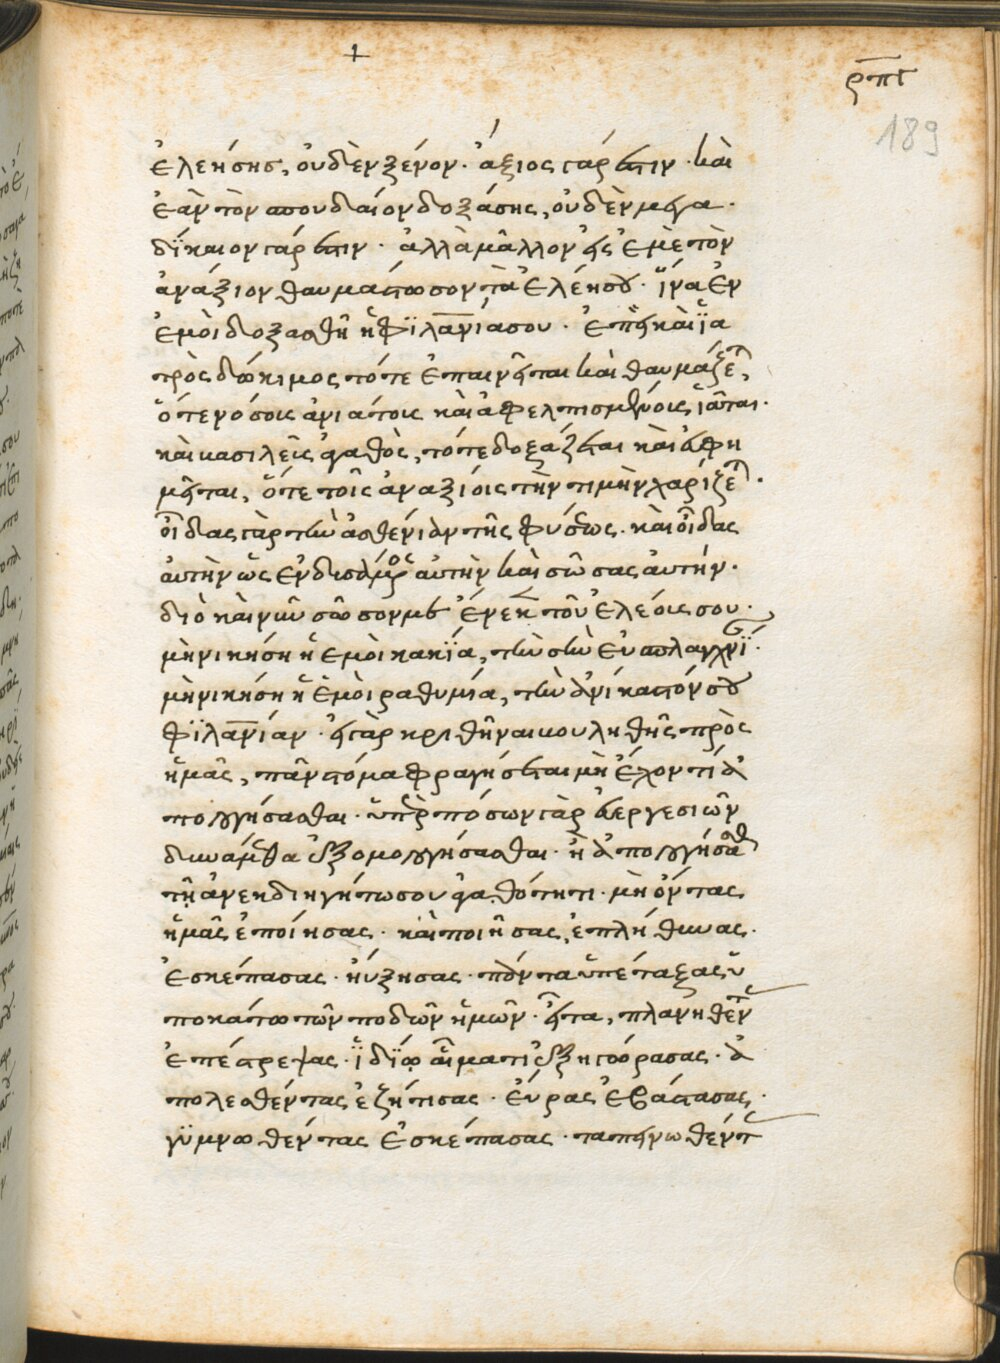 +
ρπγ
189
ἐλεήσης, οὐδὲν ξένον· ἄξιος γάρ ἐστιν· καὶ
ἐὰν τὸν σπουδαίον δοξάσης, οὐδὲν μέγα·
δΐκαιον γάρ ἐστιν· ἀλλὰ μᾶλλον εἰς ἐμὲ τὸν
ἀνάξιον θαυμάστωσον τὰ ἐλέη σου· ἵνα ἐν
ἐμοὶ δοξασθῆ ἡ φϊλανίασου· ἐπεὶ καὶ ἰα
τρὸς δώκιμος τότε ἐπαινεῖται καὶ θαυμάζετ,
ὅτε νόσοις ἀνιάτοις καὶ ἀφελπισμένοις ἰᾶται·
καὶ βασιλεῖς ἀγαθὸς, τότε δοξάζεται καὶ εὐφη
μεῖται, ὅτε τοῖς ἀναξίοις τὴν τιμὴν χαρίζετ·
οἶδας γὰρ τὴν ἀσθένιαν τῆς φύσεως· καὶ οἶδας
αὐτὴν ὡς ἐνδισάμενος αὐτὴν καὶ σώσας αὐτήν·
διὸ καὶ νῦν σῶσον με ἕνεκ τοῦ ἐλέοις σου·
μὴ νικήση ἡ ἐμοὶ κακΐα, τὴν σὴν εὐσπλαγχνΐ·
μὴ νικήση ἡ ἐμοὶ ραθυμία, τὴν ἀνίκαστόν σου
φϊλανίαν· εἰ γὰρ κριθῆναι βουληθῆς πρὸς
ἡμᾶς, πᾶν στόμα φραγήσεται μὴ ἔχον τί ἀ
πολογήσασθαι· ὑπὲρ πόσων γὰρ εὐεργεσιῶν
δυνάμεθα ἐξομολογήσασθαι· ἢ ἀπολογήσασθ
τῆ ἀνεκδιηγήτω σου ἀγαθότητι· μὴ ὄντας
ἡμᾶς ἐποίησας· καὶ ποιῆσας, ἐπλήθυνας·
ἐσκέπασας· ηὔξησας· πάντα ὑπέταξας ὑ
ποκάτω τῶν ποδῶν ἡμῶν· εἶτα, πλανηθέντ
ἐπέστρεψας· ἰδΐω αἵματι ἐξηγόρασας· ἀ
πολεσθέντας ἐζήτισας· εὑρας ἐβάστασας·
γϋμνωθέντας ἐσκέπασας· ταπεινωθέντ